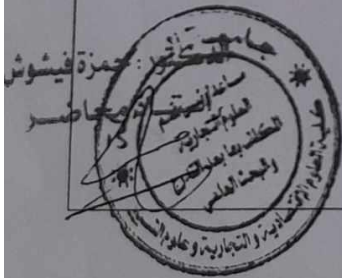 جامعة
الدكتور : حمزة فيشوش
أستاذ محاضر
مساعد رئيس قسم
العلوم التجارية
المكلف بما بعد التدرج
والبحث العلمي
كلية العلوم الاقتصادية والتجارية وعلوم